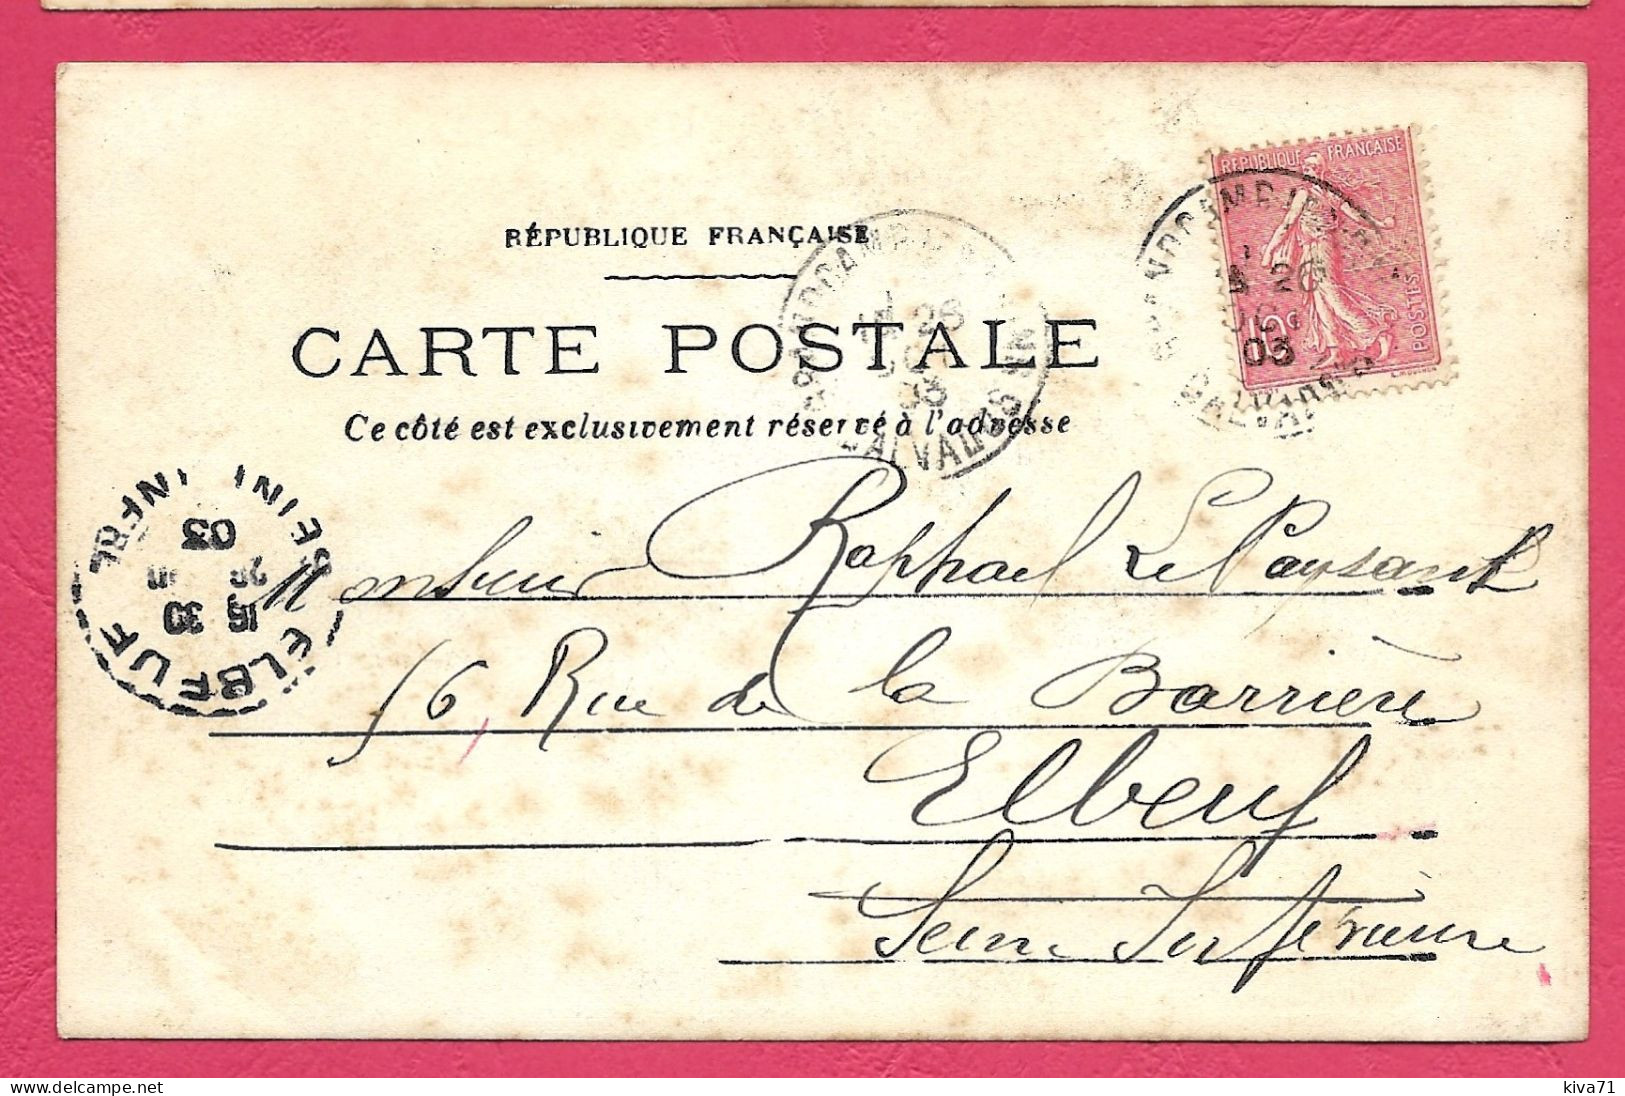 RÉPUBLIQUE FRANÇAISE
CARTE POSTALE
Ce côté est exclusivement réservé à l'adresse
RÉPUBLIQUE FRANÇAISE
10c
POSTES
26
03
26
03
CALVADOS
ELBEUF
SEINE INFRE
15 30
03
Monsieur Raphael Le Paysant
56 Rue de la Barrière
Elbeuf
Seine Inférieure
kiva71